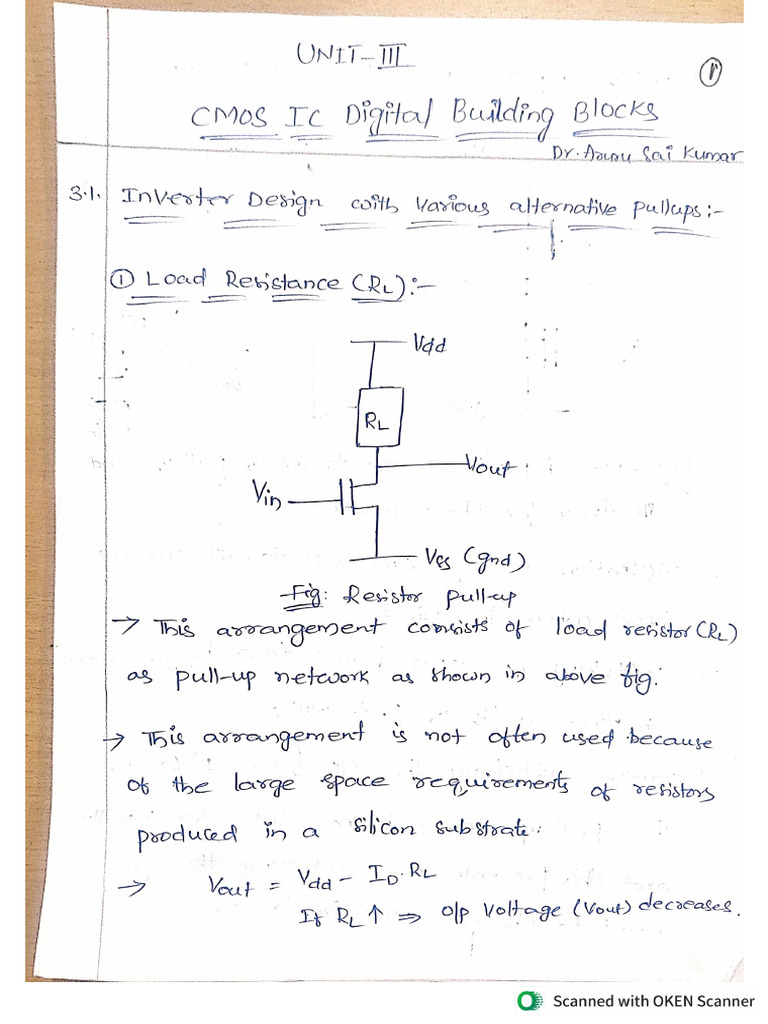 UNIT-III
1
CMOS IC Digital Building Blocks
Dr. Arun Sai Kumar
3.1. Inverter Design with Various alternative pullups:-
① Load Resistance (RL):-
Vdd
RL
Vout
Vin
Vss (gnd)
Fig: Resistor pull-up
→ This arrangement consists of load resistor (RL)
as pull-up network as shown in above fig.
→ This arrangement is not often used because
of the large space requirements of resistors
produced in a silicon substrate.
→ Vout = Vdd - ID.RL
If RL ↑ ⇒ o/p voltage (Vout) decreases.
Scanned with OKEN Scanner